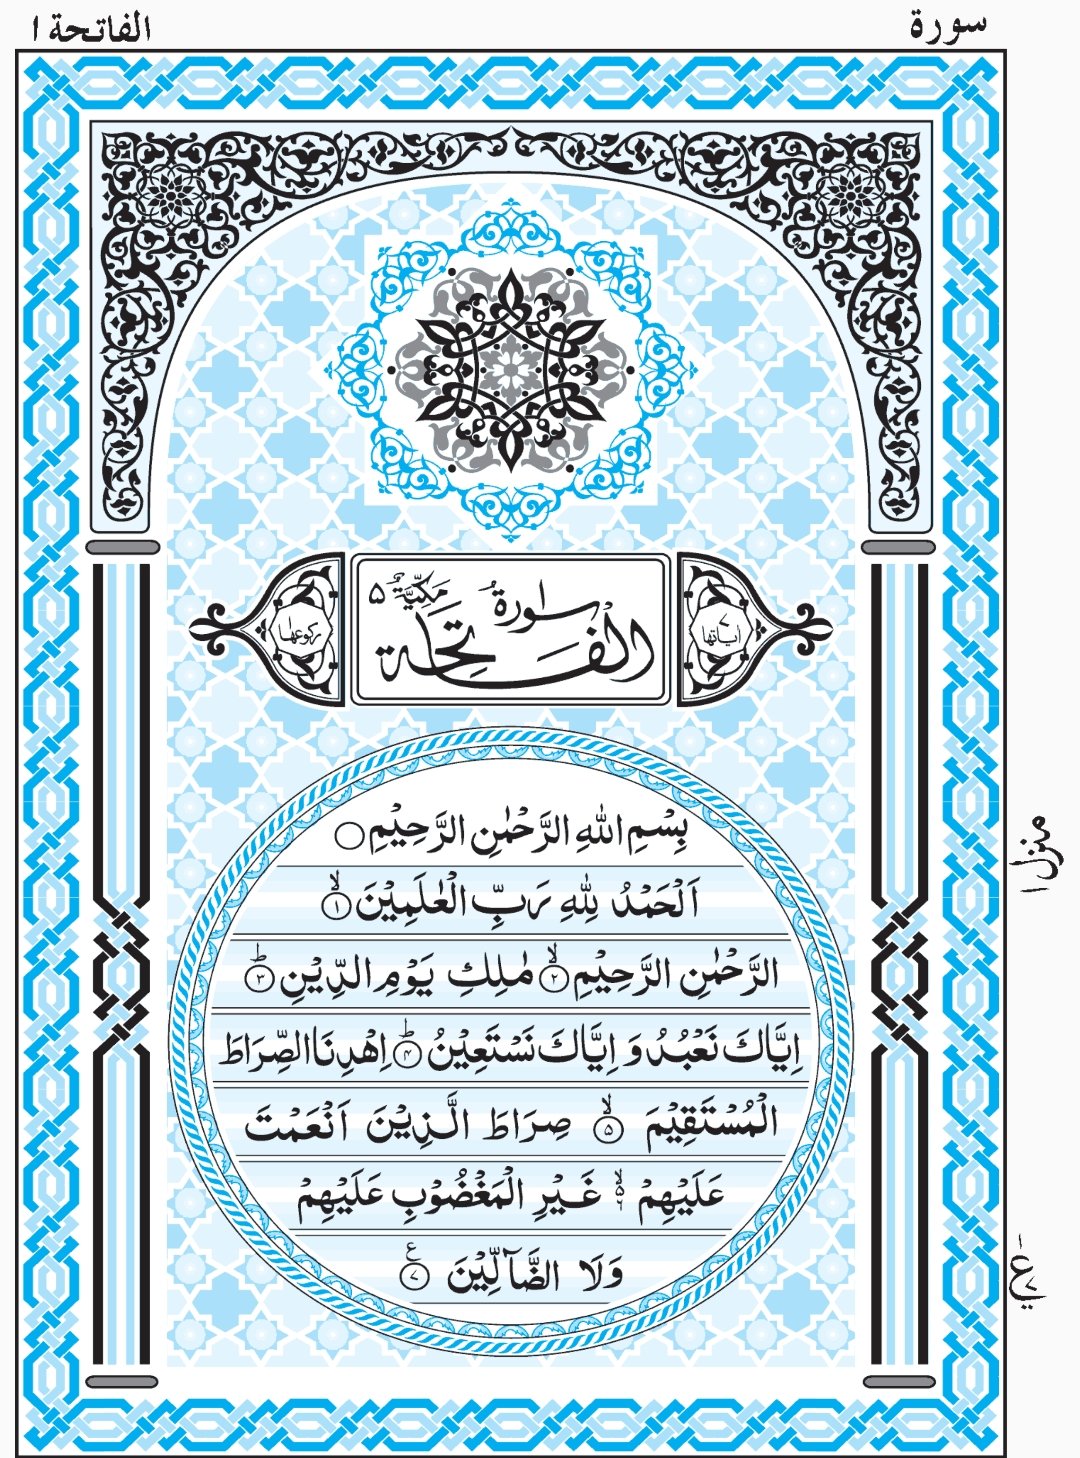 سورة الفاتحة ١
سورة الفاتحة مكية ٥
اٰیاتها ٧
رکوعها ١
بِسْمِ اللّٰهِ الرَّحْمٰنِ الرَّحِیْمِ
اَلْحَمْدُ لِلّٰهِ رَبِّ الْعٰلَمِیْنَۙ‏﴿۱﴾
الرَّحْمٰنِ الرَّحِیْمِۙ‏﴿۲﴾ مٰلِكِ یَوْمِ الدِّیْنِؕ‏﴿۳﴾
اِیَّاكَ نَعْبُدُ وَ اِیَّاكَ نَسْتَعِیْنُؕ‏﴿۴﴾ اِهْدِنَا الصِّرَاطَ
الْمُسْتَقِیْمَۙ‏﴿۵﴾ صِرَاطَ الَّذِیْنَ اَنْعَمْتَ
عَلَیْهِمْ ۙ۬۶ غَیْرِ الْمَغْضُوْبِ عَلَیْهِمْ
وَلَا الضَّآلِّیْنَ ع ﴿۷﴾
منزل ١
ع ٧